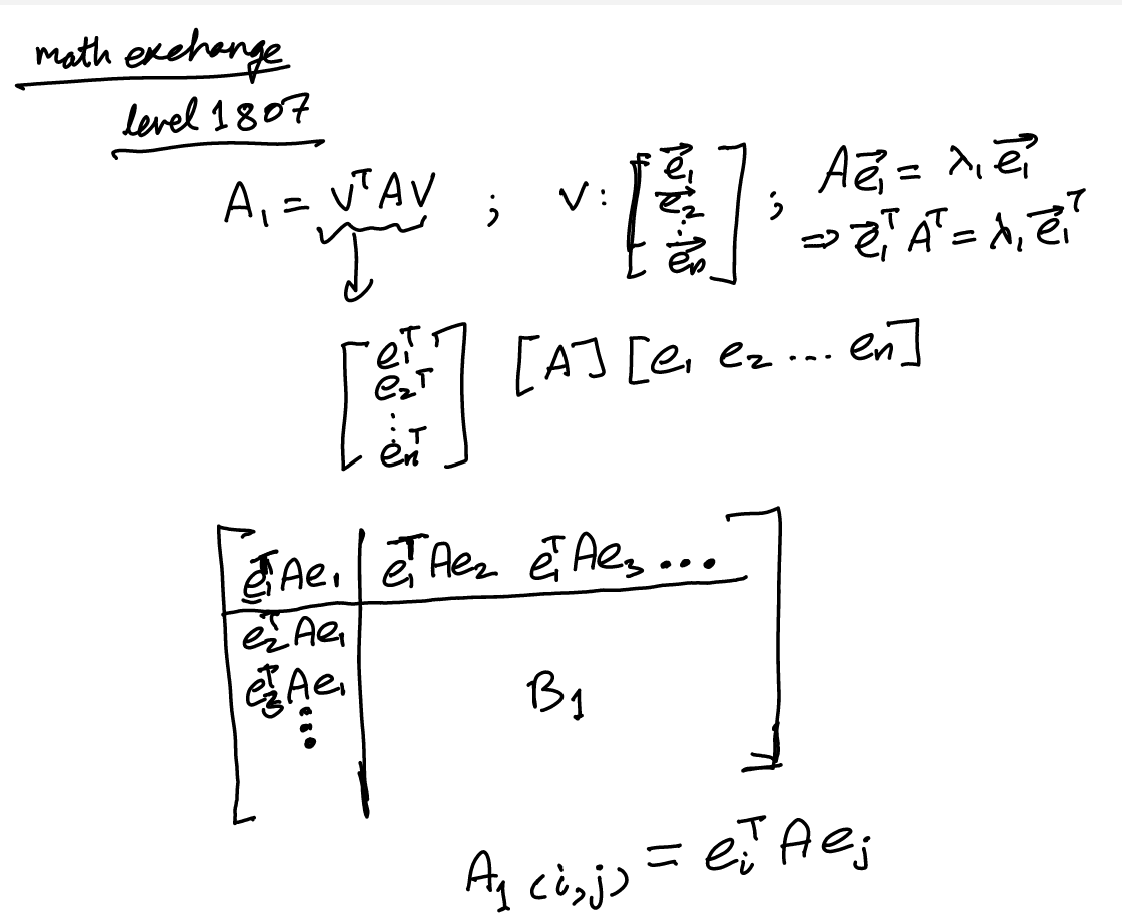 math exchange
level 1807
A₁ = VᵀAV ; V: [e⃗₁ e⃗₂ ⋮ e⃗ₙ] ; Ae⃗₁ = λ₁e⃗₁
⇒ e⃗₁ᵀAᵀ = λ₁e⃗₁ᵀ
[e₁ᵀ e₂ᵀ ⋮ eₙᵀ] [A] [e₁ e₂ ... eₙ]
e₁ᵀAe₁ | e₁ᵀAe₂ e₁ᵀAe₃ ...
e₂ᵀAe₁
e₃ᵀAe₁ B₁
⋮
A₁(i,j) = eᵢᵀAeⱼ